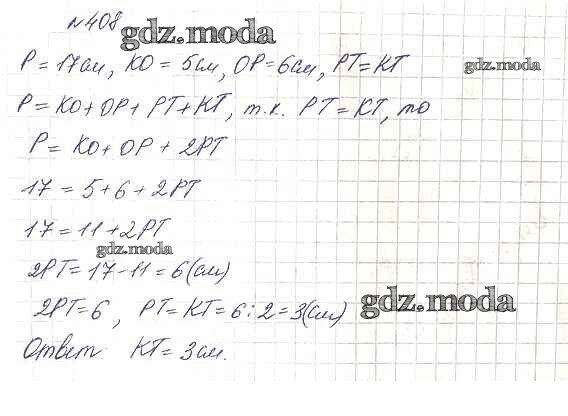 №408
gdz.moda
P = 17см, KO = 5см, OP = 6см, PT = KT
gdz.moda
P = KO + OP + PT + KT, т.к. PT = KT, то
P = KO + OP + 2PT
17 = 5 + 6 + 2PT
17 = 11 + 2PT
gdz.moda
2PT = 17 - 11 = 6(см)
2PT = 6, PT = KT = 6 : 2 = 3(см)
gdz.moda
Ответ KT = 3см.